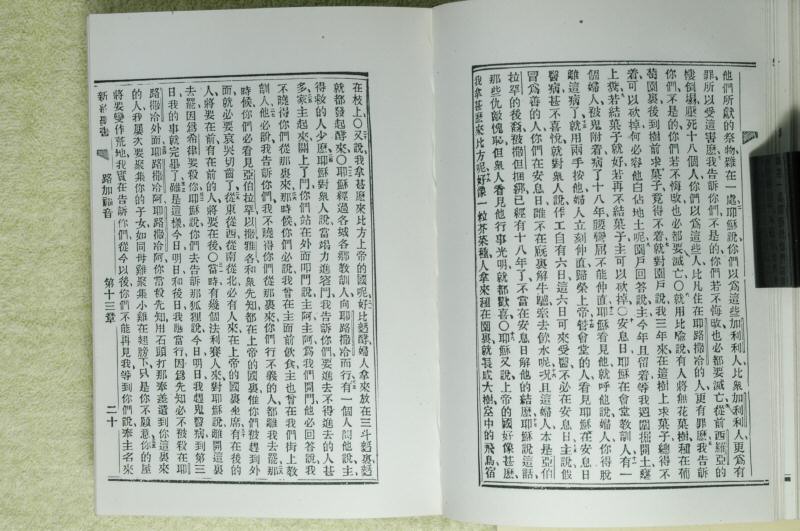 他們所獻的祭物雜在一處、耶穌說、你們以爲這些加利利人、比衆加利利人更爲有
罪、所以受這害麽、我告訴你們、不是的、你們若不悔改、也必都要滅亡、從前西羅亞的
樓倒塌、壓死十八個人、你們以爲這些人、比凡住在耶路撒冷的人、更有罪麽、我告訴
你們、不是的、你們若不悔改、也必都要滅亡○就用比喻說、有人將無花菓樹種在葡
萄園裏、後到樹前求菓子、竟得不着、就對園戶說、我三年來在這樹上求菓子、總得不
着、可以砍掉、何必容他白佔地土呢、園戶回答說、主、今年且留着、等我週圍掘開土、壅
上糞、若結菓子就好、若再不結菓子、主可以砍掉○安息日、耶穌在會堂教訓人、有一
個婦人、被鬼附着病了十八年、腰彎屈不能伸直、耶穌看見他、就呼他說、婦人、你得脫
離這病了、就用兩手按他、婦人立刻伸直、歸榮上帝、管會堂的人、看見耶穌在安息日
醫病、甚不喜悅、就對衆人說、作工自有六日、這六日可來受醫、不必在安息日、主說、假
冒爲善的人、你們在安息日、誰不在廐裏解牛驢、牽去飲水呢、况且這婦人本是亞伯
拉罕的後裔、被撒但捆綁、已經有十八年了、不當在安息日解他的結麽、耶穌說這話、
那些仇敵慚愧、但衆人看見他行事光明、就都歡喜○耶穌又說、上帝的國好像甚麽、
我拿甚麽來比方呢、好像一粒芥菜種、人拿來種在園裏、就長成大樹、空中的飛鳥宿
在枝上○又說、我拿甚麽來比方上帝的國呢、好比麪酵、婦人拿來放在三斗麪裏、麪
就都發起酵來○耶穌經過各城各鄉教訓人、向耶路撒冷而行、有一個人問他說、主、
得救的人少麽、耶穌對衆人說、當竭力進窄門、我告訴你們、要進去不得進去的人甚
多、家主起來關上了門、你們站在外面叩門說、主阿、主阿、爲我們開門、他必回答說、我
不曉得你們從那裏來、那時候、你們必說、我曾在主面前飲食、主也曾在我們街上教
訓人、他必說、我告訴你們、我不曉得你們從那裏來、你們行不義的人、都離我去罷、那
時候、你們必看見亞伯拉罕以撒雅各和衆先知、都在上帝的國裏、惟你們被趕到外
面、就必要哀哭切齒了、從東從西從南從北、必有人來、在上帝的國裏坐席、有在後的
人將要在前、有在前的人將要在後○當時有幾個法利賽人、來對耶穌說、離開這裏
去罷、因爲希律要殺你、耶穌說、你們去告訴那狐狸說、今日明日、我趕鬼醫病、到第三
日我的事就完畢了、雖是這樣、今日明日和後日、我應當行、因爲先知必不被殺在耶
路撒冷外面、耶路撒冷阿、耶路撒冷阿、你常殺先知、用石頭打那奉差遣到你這裏來
的人、我屢次要聚集你的子女、如同母雞聚集小雞在翅膀下、只是你不願意、你的屋
將要變作荒地、我實在告訴你們、從今以後、你們不能再見我、等到你們說、奉主名來
路加福音
第十三章
二十